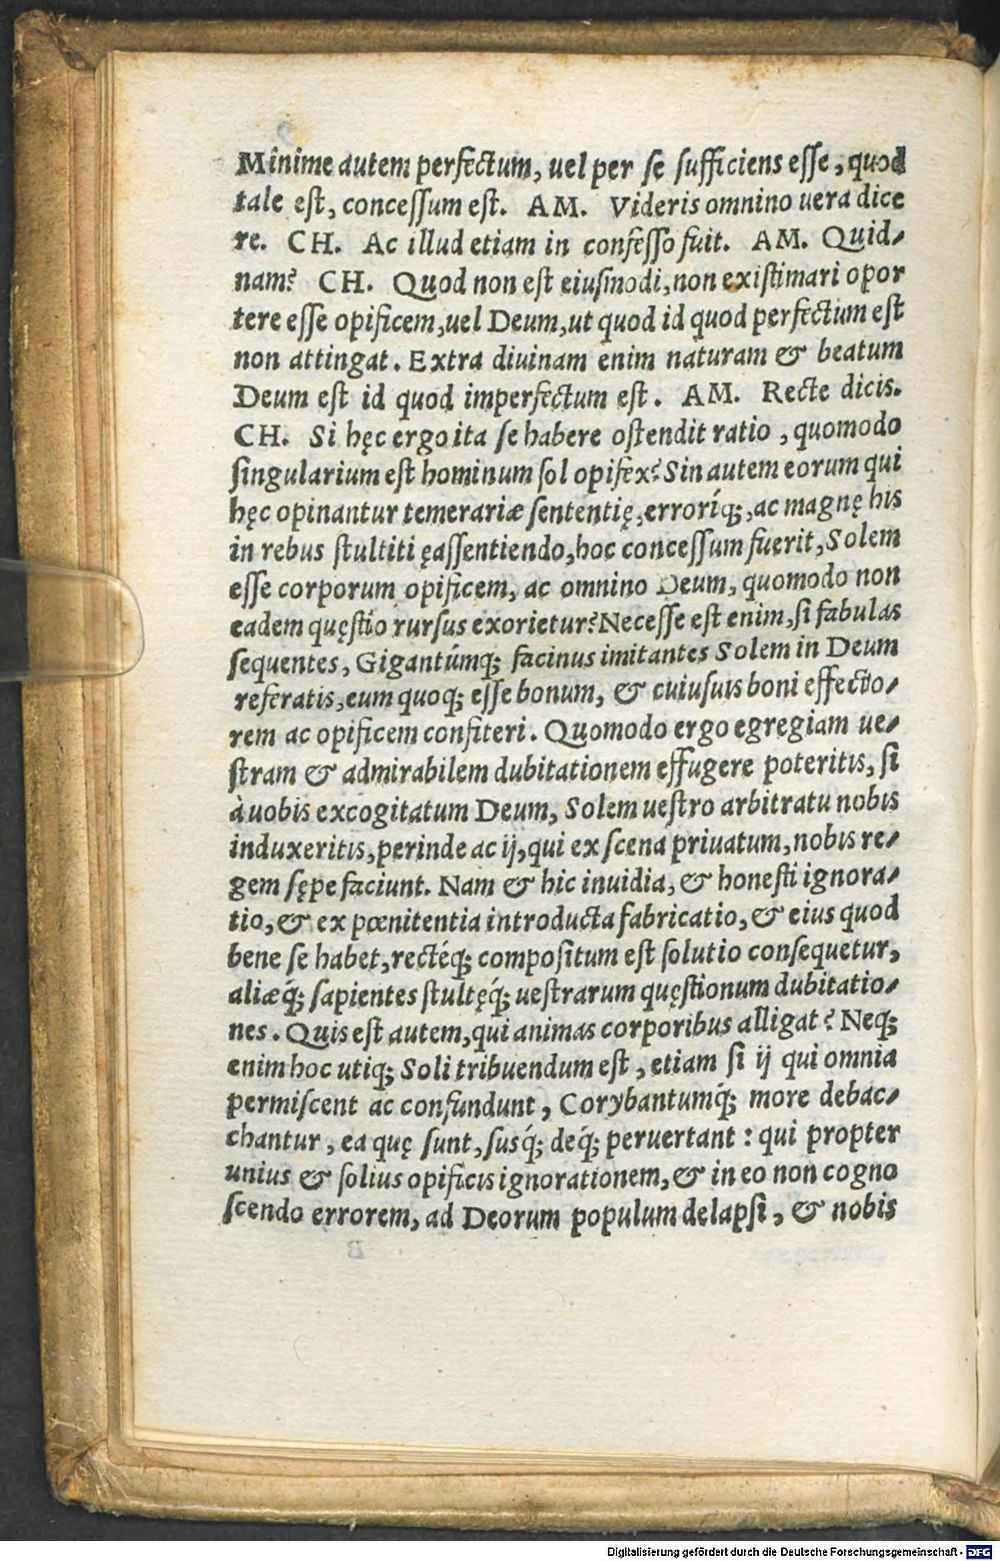 Minime autem perfectum, uel per se sufficiens esse, quod
tale est, concessum est. AM. Videris omnino uera dice
re. CH. Ac illud etiam in confesso fuit. AM. Quid-
nam? CH. Quod non est eiusmodi, non existimari opor
tere esse opificem, uel Deum, ut quod id quod perfectum est
non attingat. Extra diuinam enim naturam & beatum
Deum est id quod imperfectum est. AM. Recte dicis.
CH. Si hęc ergo ita se habere ostendit ratio, quomodo
singularium est hominum sol opifex? Sin autem eorum qui
hęc opinantur temerariæ sententię, erroríq;, ac magnę his
in rebus stultiti ęassentiendo, hoc concessum fuerit, Solem
esse corporum opificem, ac omnino Deum, quomodo non
eadem quęstio rursus exorietur? Necesse est enim, si fabulas
sequentes, Gigantúmq; facinus imitantes Solem in Deum
referatis, eum quoq; esse bonum, & cuiusuis boni effecto-
rem ac opificem confiteri. Quomodo ergo egregiam ue-
stram & admirabilem dubitationem effugere poteritis, si
à uobis excogitatum Deum, Solem uestro arbitratu nobis
induxeritis, perinde ac ij, qui ex scena priuatum, nobis re-
gem sępe faciunt. Nam & hic inuidia, & honesti ignora-
tio, & ex pœnitentia introducta fabricatio, & eius quod
bene se habet, rectéq; compositum est solutio consequetur,
aliæq́; sapientes stultęq́; uestrarum quęstionum dubitatio-
nes. Quis est autem, qui animas corporibus alligat? Neq;
enim hoc utiq; Soli tribuendum est, etiam si ij qui omnia
permiscent ac confundunt, Corybantumq́; more debac-
chantur, ea quę sunt, susq́; deq́; peruertant: qui propter
unius & solius opificis ignorationem, & in eo non cogno
scendo errorem, ad Deorum populum delapsi, & nobis
Digitalisierung gefördert durch die Deutsche Forschungsgemeinschaft - DFG